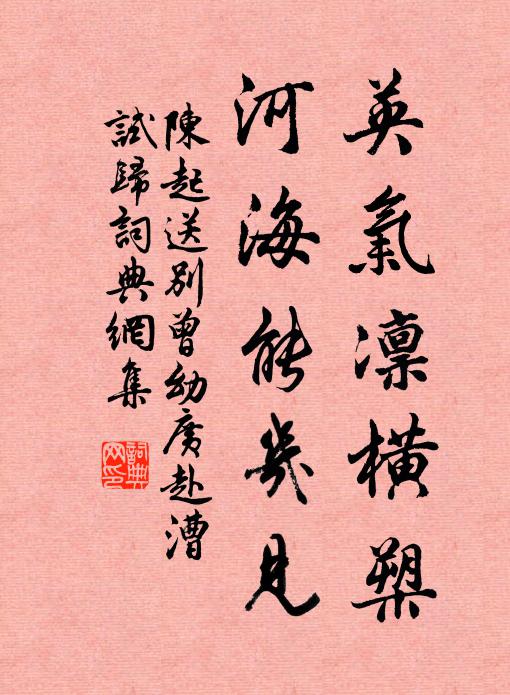 英氣凜橫槊
河海能幾見
陳起送別曾幼廣赴漕
試歸詞典網集
詞典網印